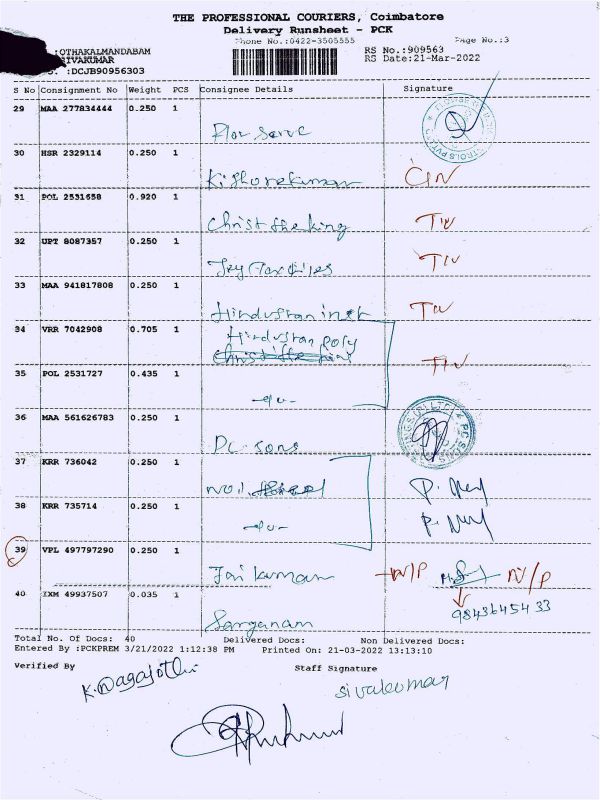 THE PROFESSIONAL COURIERS, Coimbatore
Delivery Runsheet - PCK
Phone No.:0422-3505555
Page No.:3
:OTHAKALMANDABAM
RS No.:909563
SIVAKUMAR
RS Date:21-Mar-2022
:DCJB90956303
S No Consignment No Weight PCS Consignee Details Signature
29 MAA 277834444 0.250 1
Flow serve
30 HSR 2329114 0.250 1
Kishorekumar
31 POL 2531658 0.920 1
Christ the king
32 UPT 8087357 0.250 1
33 MAA 941817808 0.250 1
Hindustan inst
34 VRR 7042908 0.705 1
Hindustan Poly
35 POL 2531727 0.435 1
36 MAA 561626783 0.250 1
PC. sons
37 KRR 736042 0.250 1
38 KRR 735714 0.250 1
39 VPL 497797290 0.250 1
Jai kumar N/P
40 IXM 49937507 0.035 1
9843645433
Total No. Of Docs: 40 Delivered Docs: Non Delivered Docs:
Entered By :PCKPREM 3/21/2022 1:12:38 PM Printed On: 21-03-2022 13:13:10
Verified By Staff Signature
K. Nagajothi
sivakumar